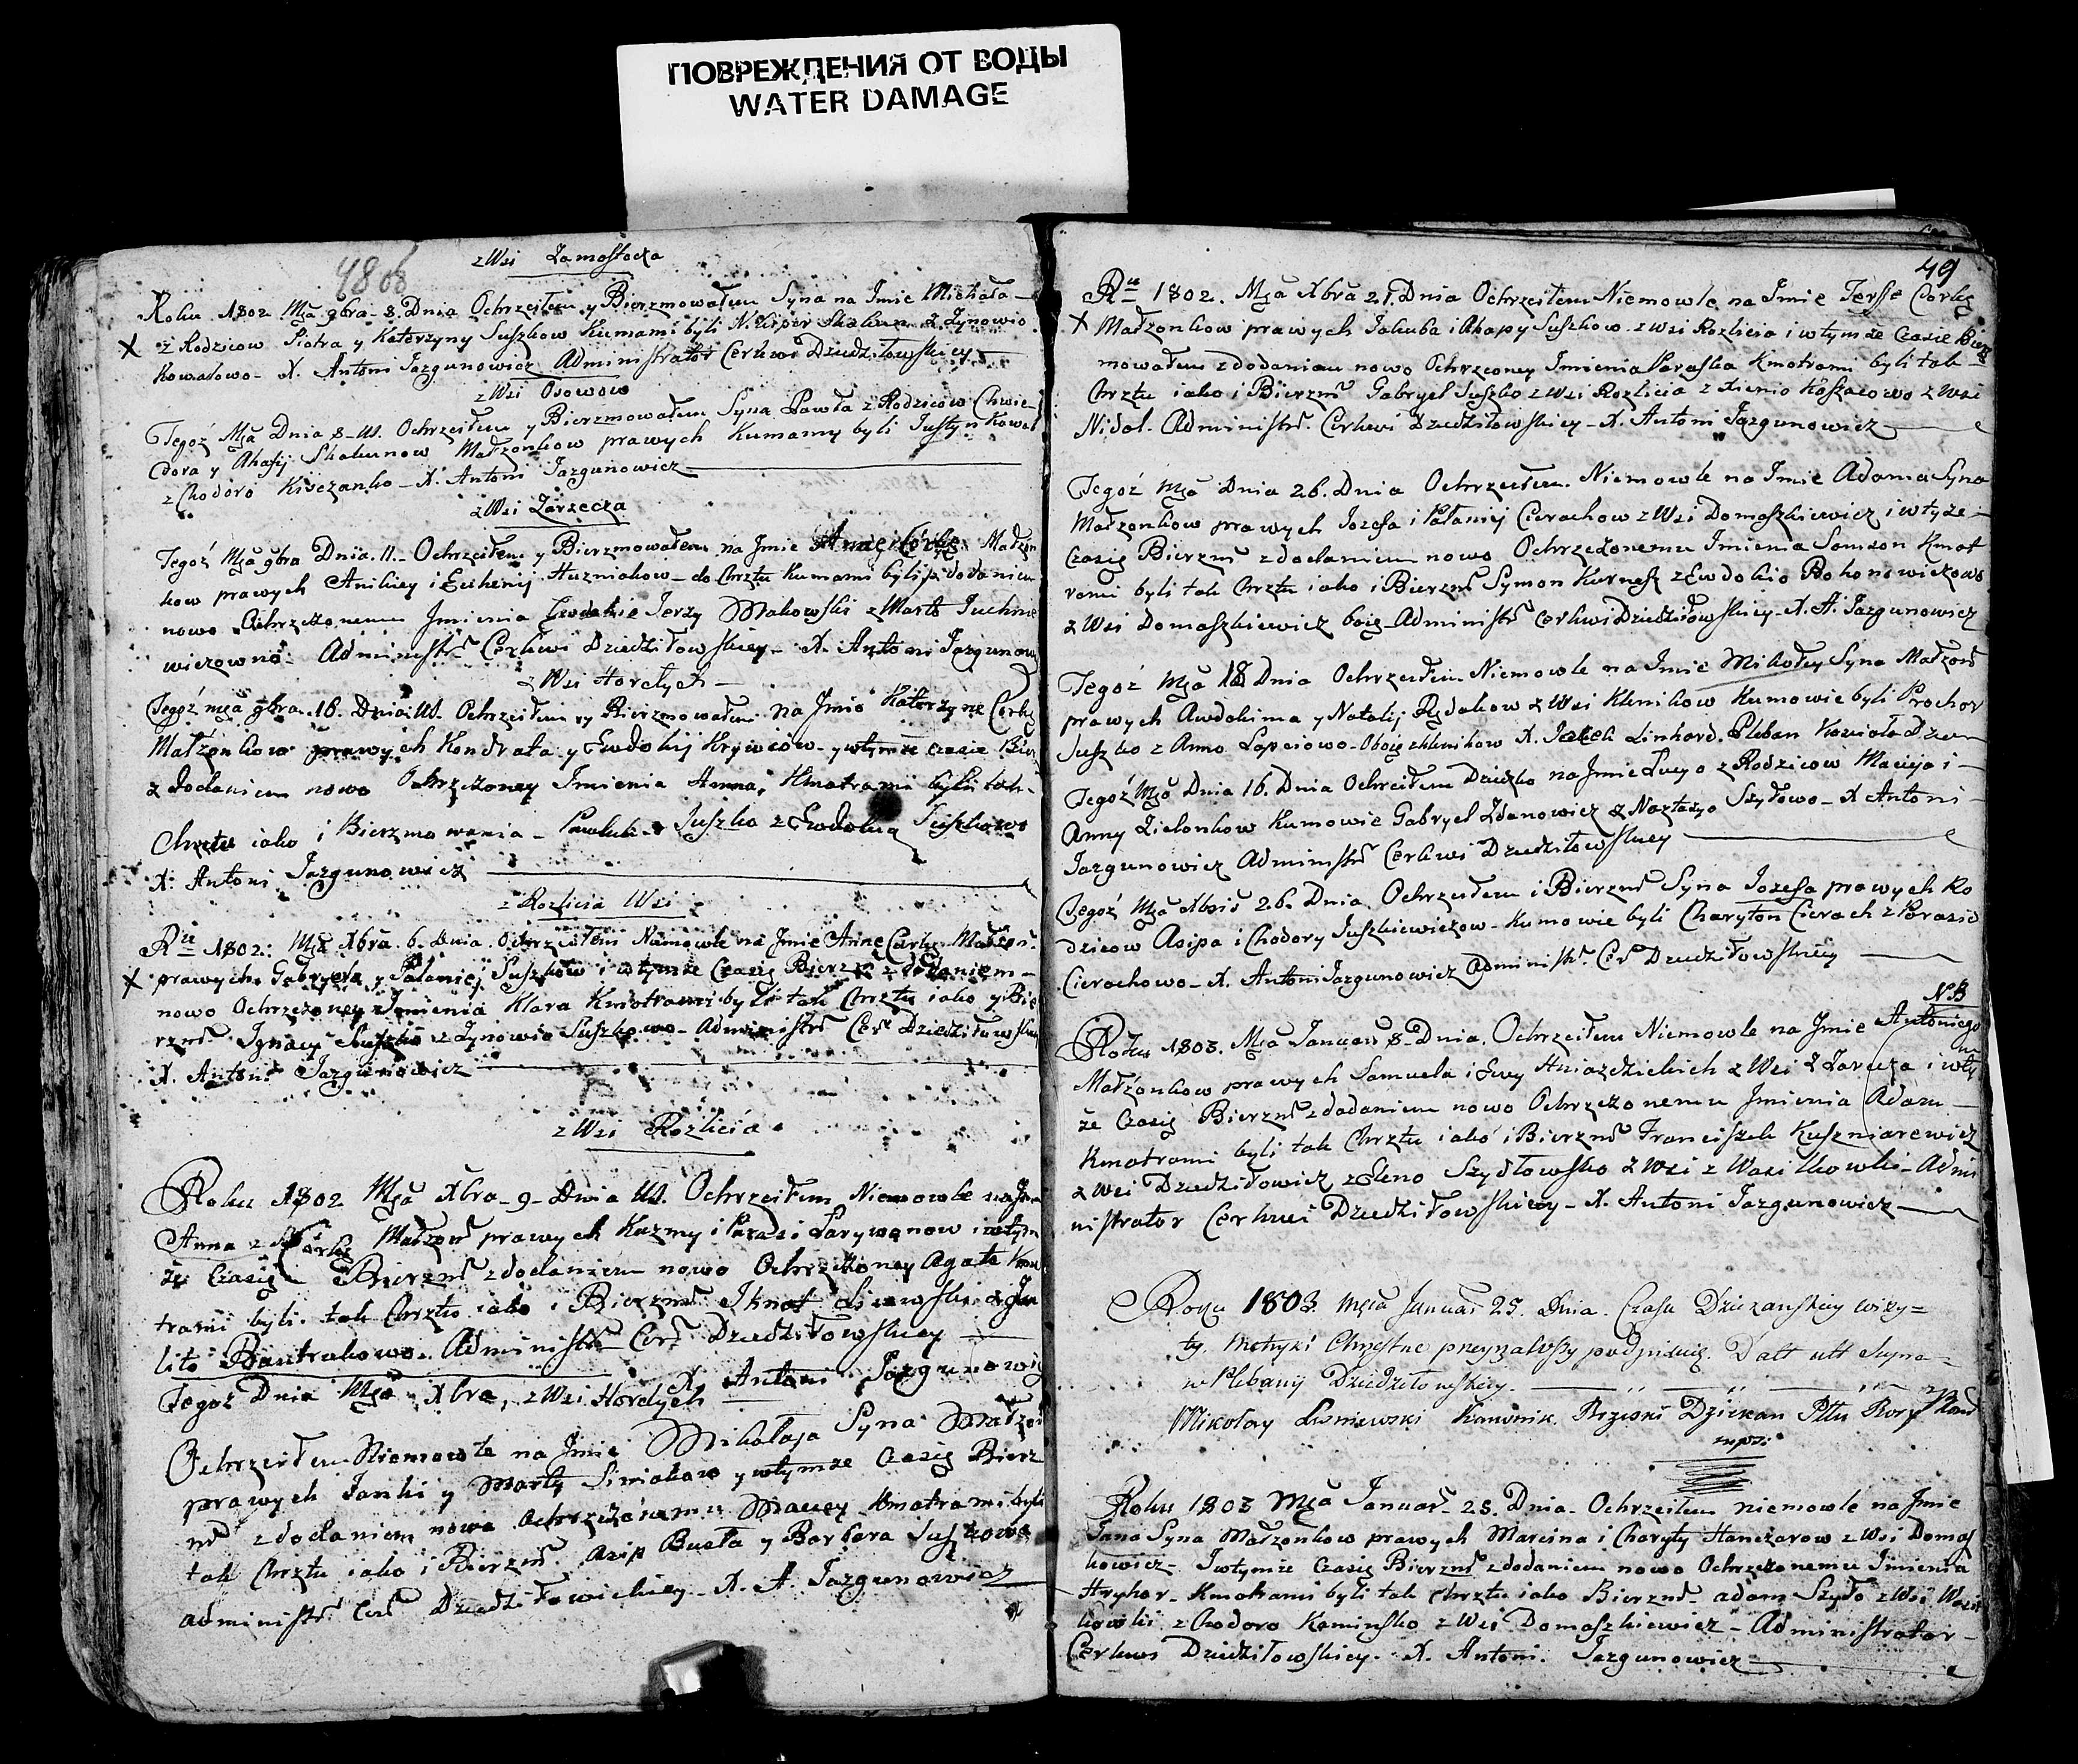 ПОВРЕЖДЕНИЯ ОТ ВОДЫ
WATER DAMAGE
48об
z Wsi Zamostocza
Roku 1802 Mца 9bra 8. Dnia Ochrzciłem y Bierzmowałem Syna na Imie Michała
z Rodzicow Piotra y Katerzyny Suszkow Kumami byli Skakun z Zynowio
Kowalowo X. Antoni Jazgunowicz Administrator Cerkwi Dziedziłowskiey
z Wsi Osowow
Tegoż Mца Dnia 8 Ut. Ochrzciłem y Bierzmowałem Syna Pawła z Rodzicow Chwie
dora y Ahafij Skakunow Małżonkow prawych Kumamy byli Justyn Kowal
z Chodoro Kisczanko X. Antoni Jazgunowicz
z Wsi Zarzecza
Tegoż Mца 9bra Dnia 11 Ochrzciłem y Bierzmowałem na Imie Annę Corkę Małżon
kow prawych Anikiey i Euhenij Huzniakow do Chrztu Kumami byli z dodaniem
nowo Ochrzczonemu Imienia Ewdokie Jerzy Makowski z Marto Juchnie
wiczowno Administr Cerkwi Dziedziłowskiey X. Antoni Jazgunow
z Wsi Horełych
Tegoż mца 9bra 16. Dnia Ut. Ochrzciłem y Bierzmowałem na Imie Katerzyne Corkę
Małżonkow prawych Kondrata y Ewdokij Krywcow y wtymże czasie Bier
z dodaniem nowo Ochrzczoney Imienia Anna, Kmotrami byli tak
Chrztu iako i Bierzmowania Pawluk Suszko z Ewdokią Suszkowo
X. Antoni Jazgunowicz
z Rozlicia Wsi
Ru 1802. Mца Xbra 6. Dnia Ochrzciłem Niemowle na Imie Annę Corkę Małżon
prawych Gabryela y Pałaniej Suszkow i wtymże Czasie Bierz z dodaniem
nowo Ochrzczoney Imienia Klara Kmotrami byli tak Chrztu iako y Bie
rzm Ignacy Suszko z Zynowio Suszkowo Administr Cer Dziedziłowskiey
X. Antoni Jazgunowicz
z Wsi Rozlicia
Roku 1802 Mца Xbra 9 Dnia Ut. Ochrzciłem Niemowle na Imie
Anna Corkę Małżon prawych Kuzmy i Parasi Larywonow i wtym
że Czasie Bierzm z dodaniem nowo Ochrzczoney Agata Kmo
trami byli tak Chrztu iako i Bierzm Ihnat
Bautrukowo Administr Cer Dziedziłowskiey
X. Antoni Jazgunowicz
Tegoż Dnia Mца Xbra, z Wsi Horełych
Ochrzciłem Niemowle na Imie Mikołaja Syna Małżon
prawych Janki y Marty Siniakow y wtymże Czasie Bierz
m z dodaniem nowo Ochrzczonemu Maciey Kmotrami byli
tak Chrztu iako i Bierzm Asip Busła y Barbara Suszkowa
Administr Cer Dziedziłowickiey X. A. Jazgunowicz
49
Ru 1802. Mца Xbra 21. Dnia Ochrzciłem Niemowle na Imie Corkę
Małżonkow prawych Jakuba i Ahapy Suszkow z wsi Rozlicia i wtymże Czasie Bierz
mowałem z dodaniem nowo Ochrzconey Imienia Paraska Kmotrami byli tak
Chrztu iako i Bierzm Gabryel Suszko z Wsi Rozlicia z Xienio z Wsi
Nidal. Administr. Cerkwi Dziedziłowskiey X. Antoni Jazgunowicz
Tegoż Mца Dnia 26. Dnia Ochrzciłem Niemowle na Imie Adama Syna
Małżonkow prawych Jozefa i Pałaniej Cierachow z Wsi Domaszkiewicz i wtyże
Czasie Bierzm z dodaniem nowo Ochrzczonemu Imienia Samson Kmot
rami byli tak Chrztu iako i Bierzm Symon Kurnasz z Ewdokio Bohonowiczowo
z Wsi Domaszkiewicz boie Administr Cerkwi Dziedziłowskiey X. A. Jazgunowicz
Tegoż Mца 18 Dnia Ochrzciłem Niemowle na Imie Mikołey Syna Małżon
prawych Awdokima y Natalij Rydakow z Wsi Klenikow Kumowie byli Prochor
Suszko z Anno Łapciowo Oboie z klenikow X. Linhard. Pleban
Tegoż Mца Dnia 16. Dnia Ochrciłem Dziecko na Imie z Rodzicow Macieja i
Anny Zielonkow Kumowie Gabryel Zdanowicz z Naztazyo Szydłowo X Antoni
Jazgunowicz Administr Cerkwi Dziedziłowskiey
Tegoż Mца Xbris 26. Dnia Ochrzciłem i Bierzm Syna Jozefa prawych Ro
dzicow Asipa i Chodory Juszkiewiczow Kumowie byli Charyton Cierach z Parasio
Cierachowo X. Antoni Jazgunowicz Administr. Cer Dziedziłowskiey
NB
Roku 1803. Mца Januar 8 Dnia Ochrzciłem Niemowle na Imie Antoniego
Małżonkow prawych Samuela i Ewy Hniazdzickich z Wsi Zarzecza i wtym
że Czasie Bierzm z dodaniem nowo Ochrzczonemu Imienia Adam
Kmotrami byli tak Chrztu iako i Bierzm Franciszek Kuszniarewicz
z Wsi Dziedziłowicz z Eleno Szydłowsko z Wsi z Wasilkowki Admi
nistrator Cerkwi Dziedziłowskiey X. Antoni Jazgunowicz
Roku 1803 Męca Januar 25. Dnia. Czasu Dziekanskiey wizy=
ty. Metryki Chrzestne przeyrzałwszy podpisuię. Datt utt Supra
w Plebanij Dziedziłowskiey.
Mikołay Lisniewski Kanonik. Brzeski Dziekan Pttu Borys
mpr
Roku 1803 Mца Januar 25. Dnia Ochrzciłem niemowle na Imie
Jana Syna Małżonkow prawych Marcina i Charyty Hanczarow z Wsi Domaś
kowicz Iwtymże Czasie Bierzm z dodaniem nowo Ochrzczonemu Imienia
Hryhor Kmotrami byli tak Chrztu iako Bierzm Adam Szydo z Wsi Wasil
kowki z Chodoro Kaminsko z Wsi Domaszkiewicz Administrator
Cerkwi Dziedziłowskiey. X. Antoni Jazgunowicz